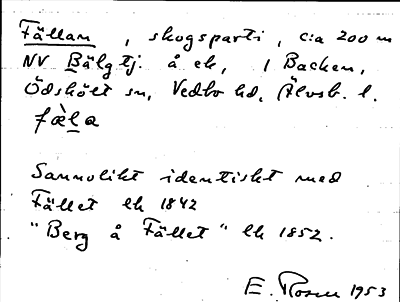 Fällan, skogsparti, c:a 200 m
NV Bälgtj. å ek, / Backen,
Ödskölt sn, Vedbo hd, Älvsb. l.
fàla
Sannolikt identiskt med
Fället ek 1842
"Berg å Fället" ek 1852.
E. Rosen 1953